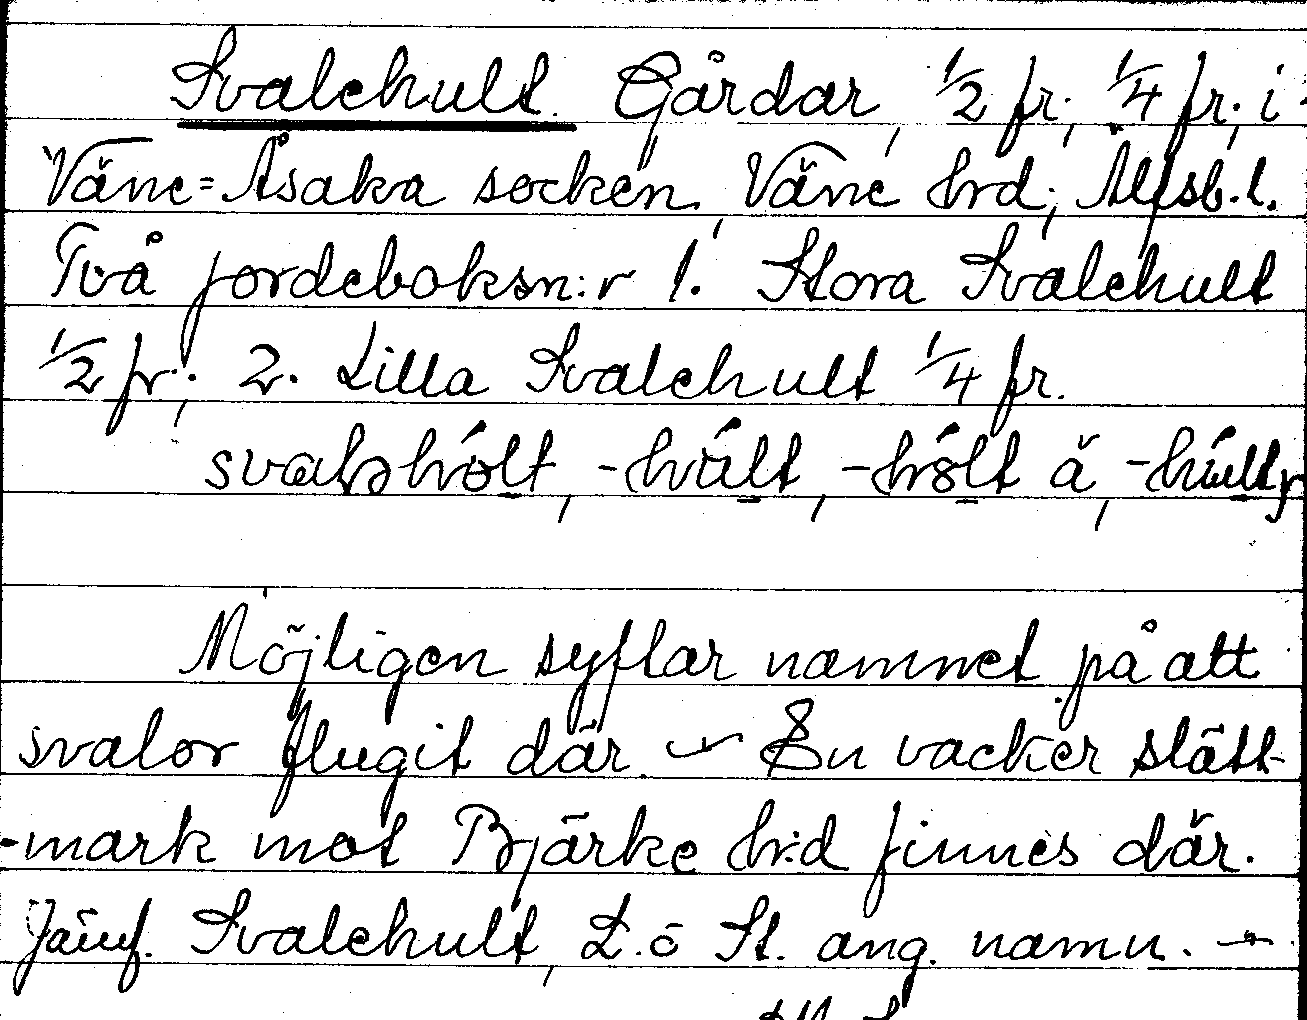 Svalehult. Gårdar, 1/2 fr, 1/4 fr, i
Väne=Åsaka socken, Väne hrd, Älfsb.l.
Två jordeboksn:r 1. Stora Svalehult
1/2 fr; 2. Lilla Svalehult 1/4 fr.
Möjligen syflar namnet på att
svalor flugit där. En vacker slätt-
-mark mot Bjärke hr:d finnes där.
Jämf. Svalehult, L. o St. ang. namn.